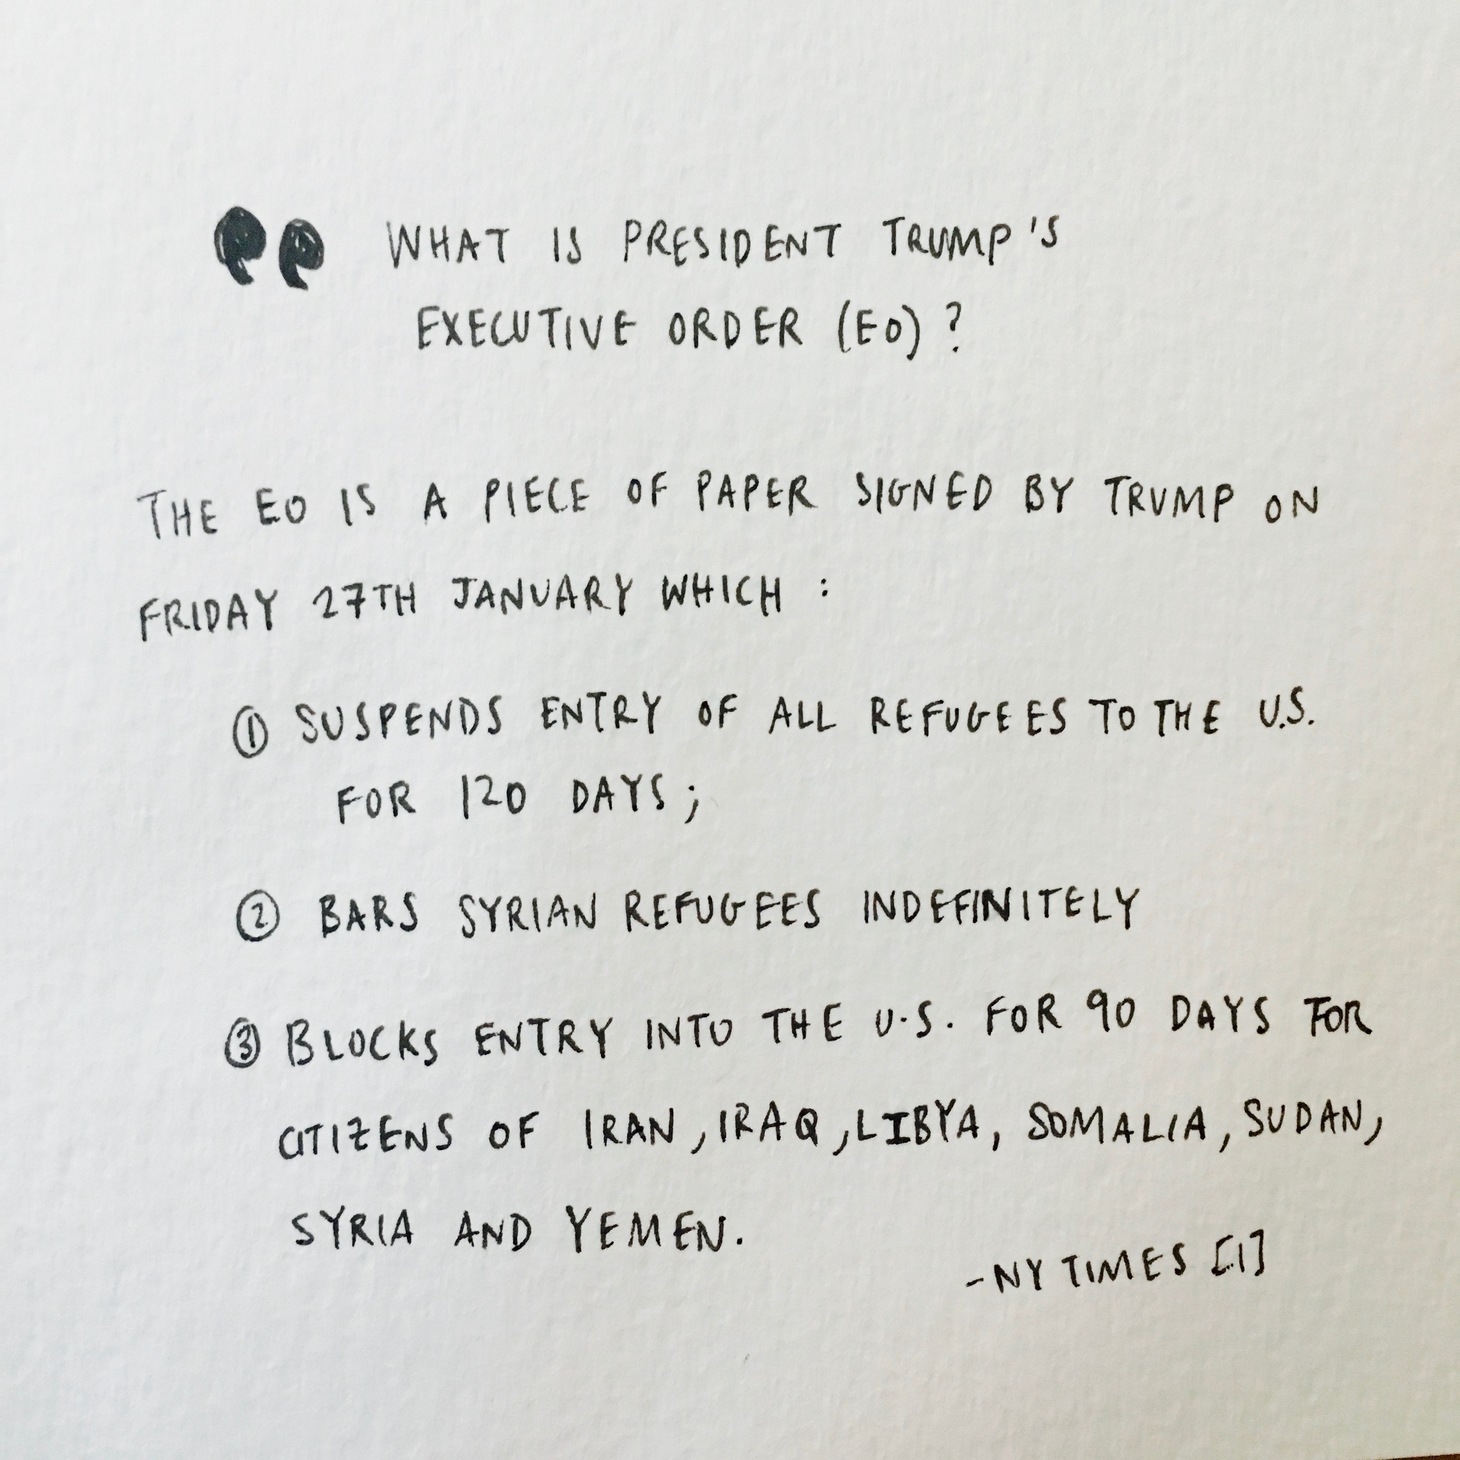 “ WHAT IS PRESIDENT TRUMP'S
EXECUTIVE ORDER (EO) ?
THE EO IS A PIECE OF PAPER SIGNED BY TRUMP ON
FRIDAY 27TH JANUARY WHICH :
① SUSPENDS ENTRY OF ALL REFUGEES TO THE U.S.
FOR 120 DAYS ;
② BARS SYRIAN REFUGEES INDEFINITELY
③ BLOCKS ENTRY INTO THE U.S. FOR 90 DAYS FOR
CITIZENS OF IRAN, IRAQ, LIBYA, SOMALIA, SUDAN,
SYRIA AND YEMEN.
- NY TIMES [1]